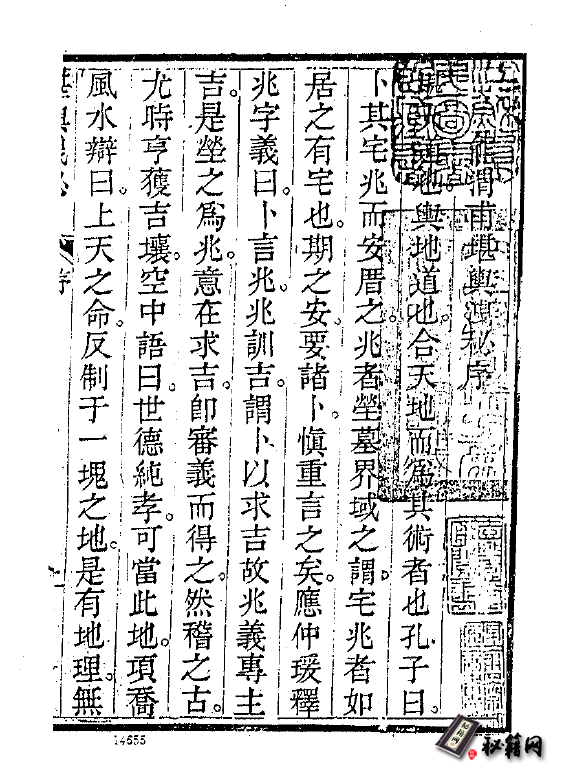 渭甫堪輿漏秘序
堪天道輿地道也合天地而為其術者也孔子曰
卜其宅兆而安厝之兆者塋墓界域之謂宅兆者如
居之有宅也。期之安要諸卜慎重言之矣。應仲瑗釋
兆字義曰卜言兆兆訓吉。謂卜以求吉故兆義專主
吉。是塋之為兆。意在求吉卽審義而得之。然稽之古。
尤時亨獲吉壤。空中語曰。世德純孝。可當此地。項喬
風水辯曰。上天之命。反制于一塊之地。是有地理。無
序
14655
秘籍网